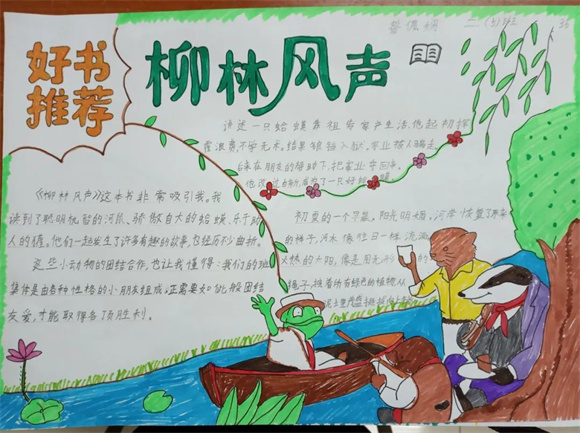 好书
推荐
柳林风声
二(3)班 36
讲述一只蛤蟆靠祖宗家产生活,他起初挥
霍浪费不学无术。结果锒铛入狱。家业被人
后来在朋友的帮助下,把家业夺回来。
他改了
《柳林风声》这本书非常吸引我。我
读到了聪明机智的河鼠、骄傲自大的蛤蟆、乐于助
人的獾。他们一起发生了许多有趣的故事,也经历不少曲折。
这些小动物的团结合作,也让我懂得:我们的班
集体是由各种性格的小朋友组成。正需要如此般团结
友爱,才能取得各项胜利。
初夏的一个早晨,阳光明媚。河岸恢复了原来
的样子,河水像往日一样流淌
火热的太阳,像是用无形的
绳子,拽着所有绿色的植物从
泥土里